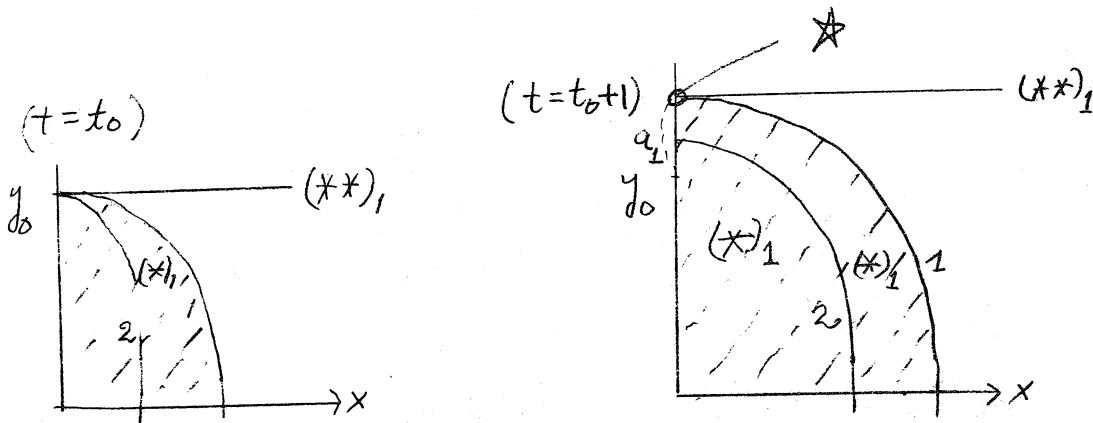 (t = t₀)
y₀
(**)₁
(*)₁
2
x
☆
(t = t₀+1)
(**)₁
a₁
y₀
(*)₁
(*)₁
1
2
x